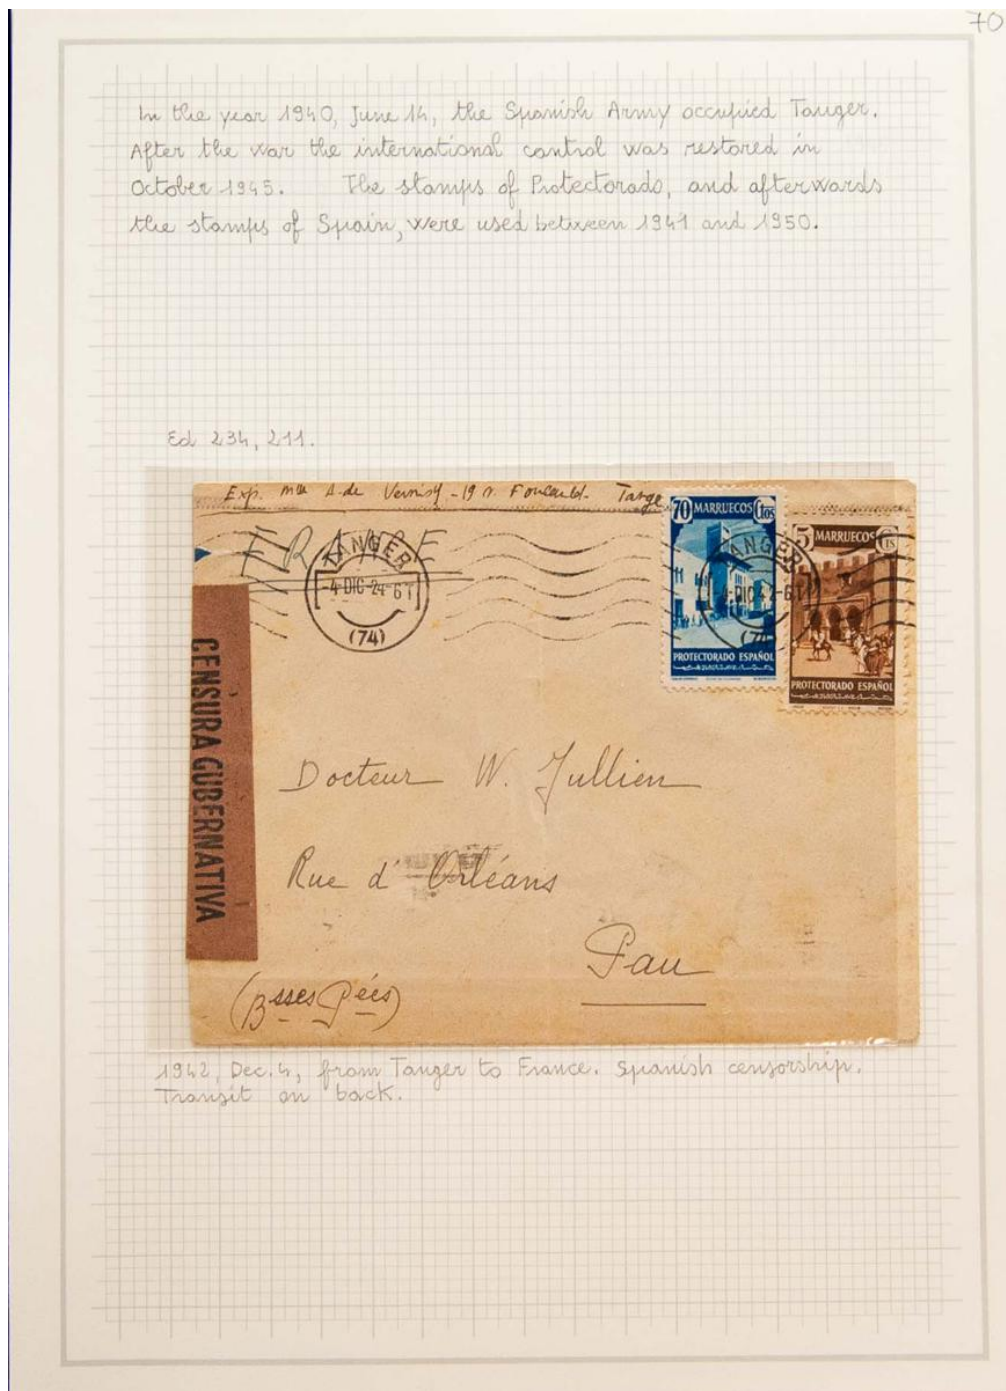 70
In the year 1940, June 14, the Spanish Army occupied Tanger.
After the war the international control was restored in
October 1945. The stamps of Protectorado, and afterwards
the stamps of Spain, were used between 1941 and 1950.
Ed 234, 211.
Exp. Mme A. de Vernisy - 19 r. Foucauld. Tange
FRANCE
TANGER
-4 DIC-24-6T
(74)
70 MARRUECOS Ctos
PROTECTORADO ESPAÑOL
TANGER
4-DIC42-6T
(74)
5 MARRUECOS Cts
PROTECTORADO ESPAÑOL
CENSURA GUBERNATIVA
Docteur W. Jullien
Rue d'Orléans
Pau
(Bsses Pées)
1942, Dec. 4, from Tanger to France. Spanish censorship.
Transit on back.